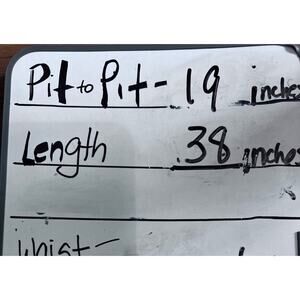 Pit to Pit - 19 inches
Length 38 inches
Whist -